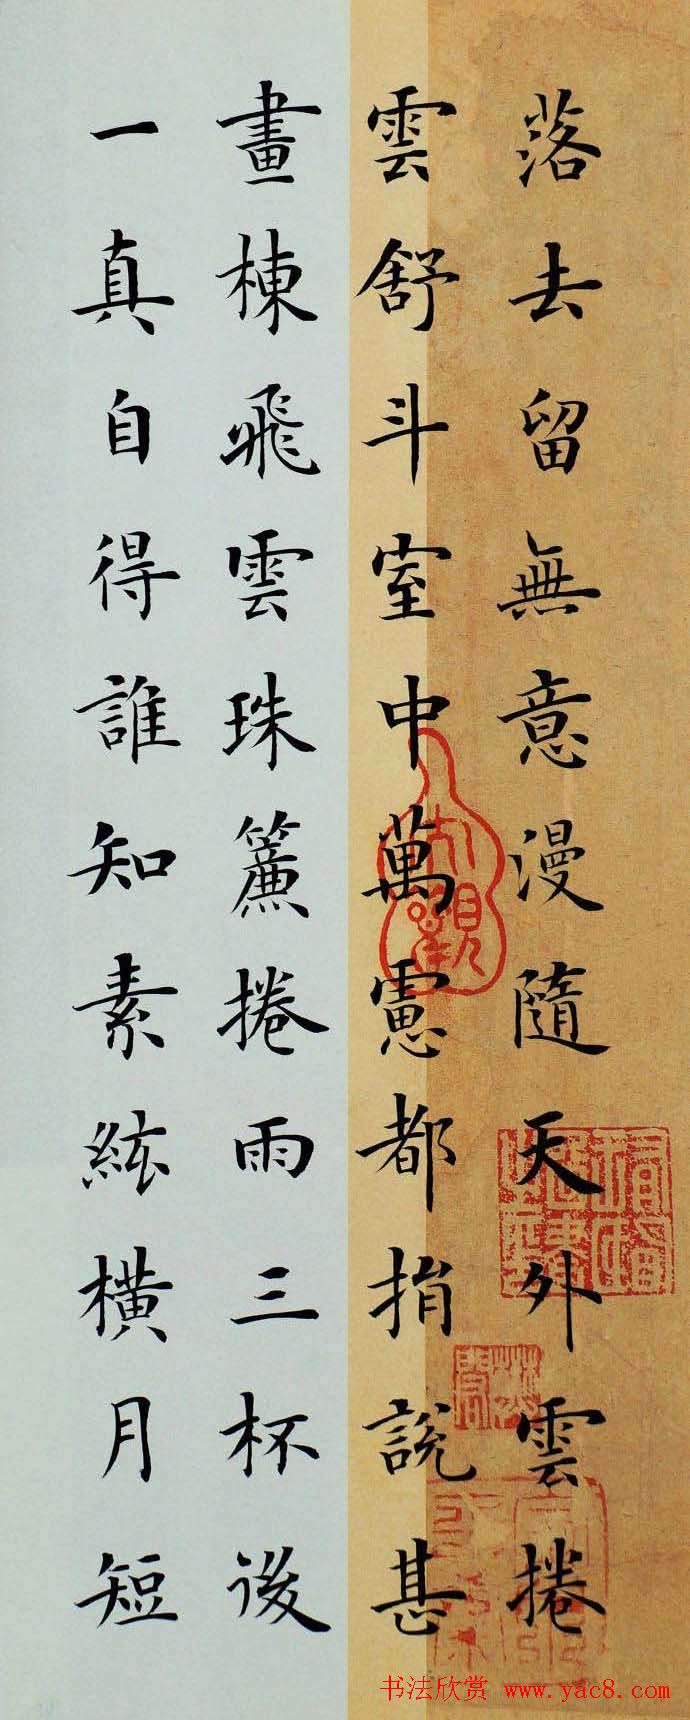 落去留無意漫隨天外雲捲
雲舒斗室中萬慮都捐說甚
畫棟飛雲珠簾捲雨三杯後
一真自得誰知素絃橫月短
书法欣赏 www.yac8.com